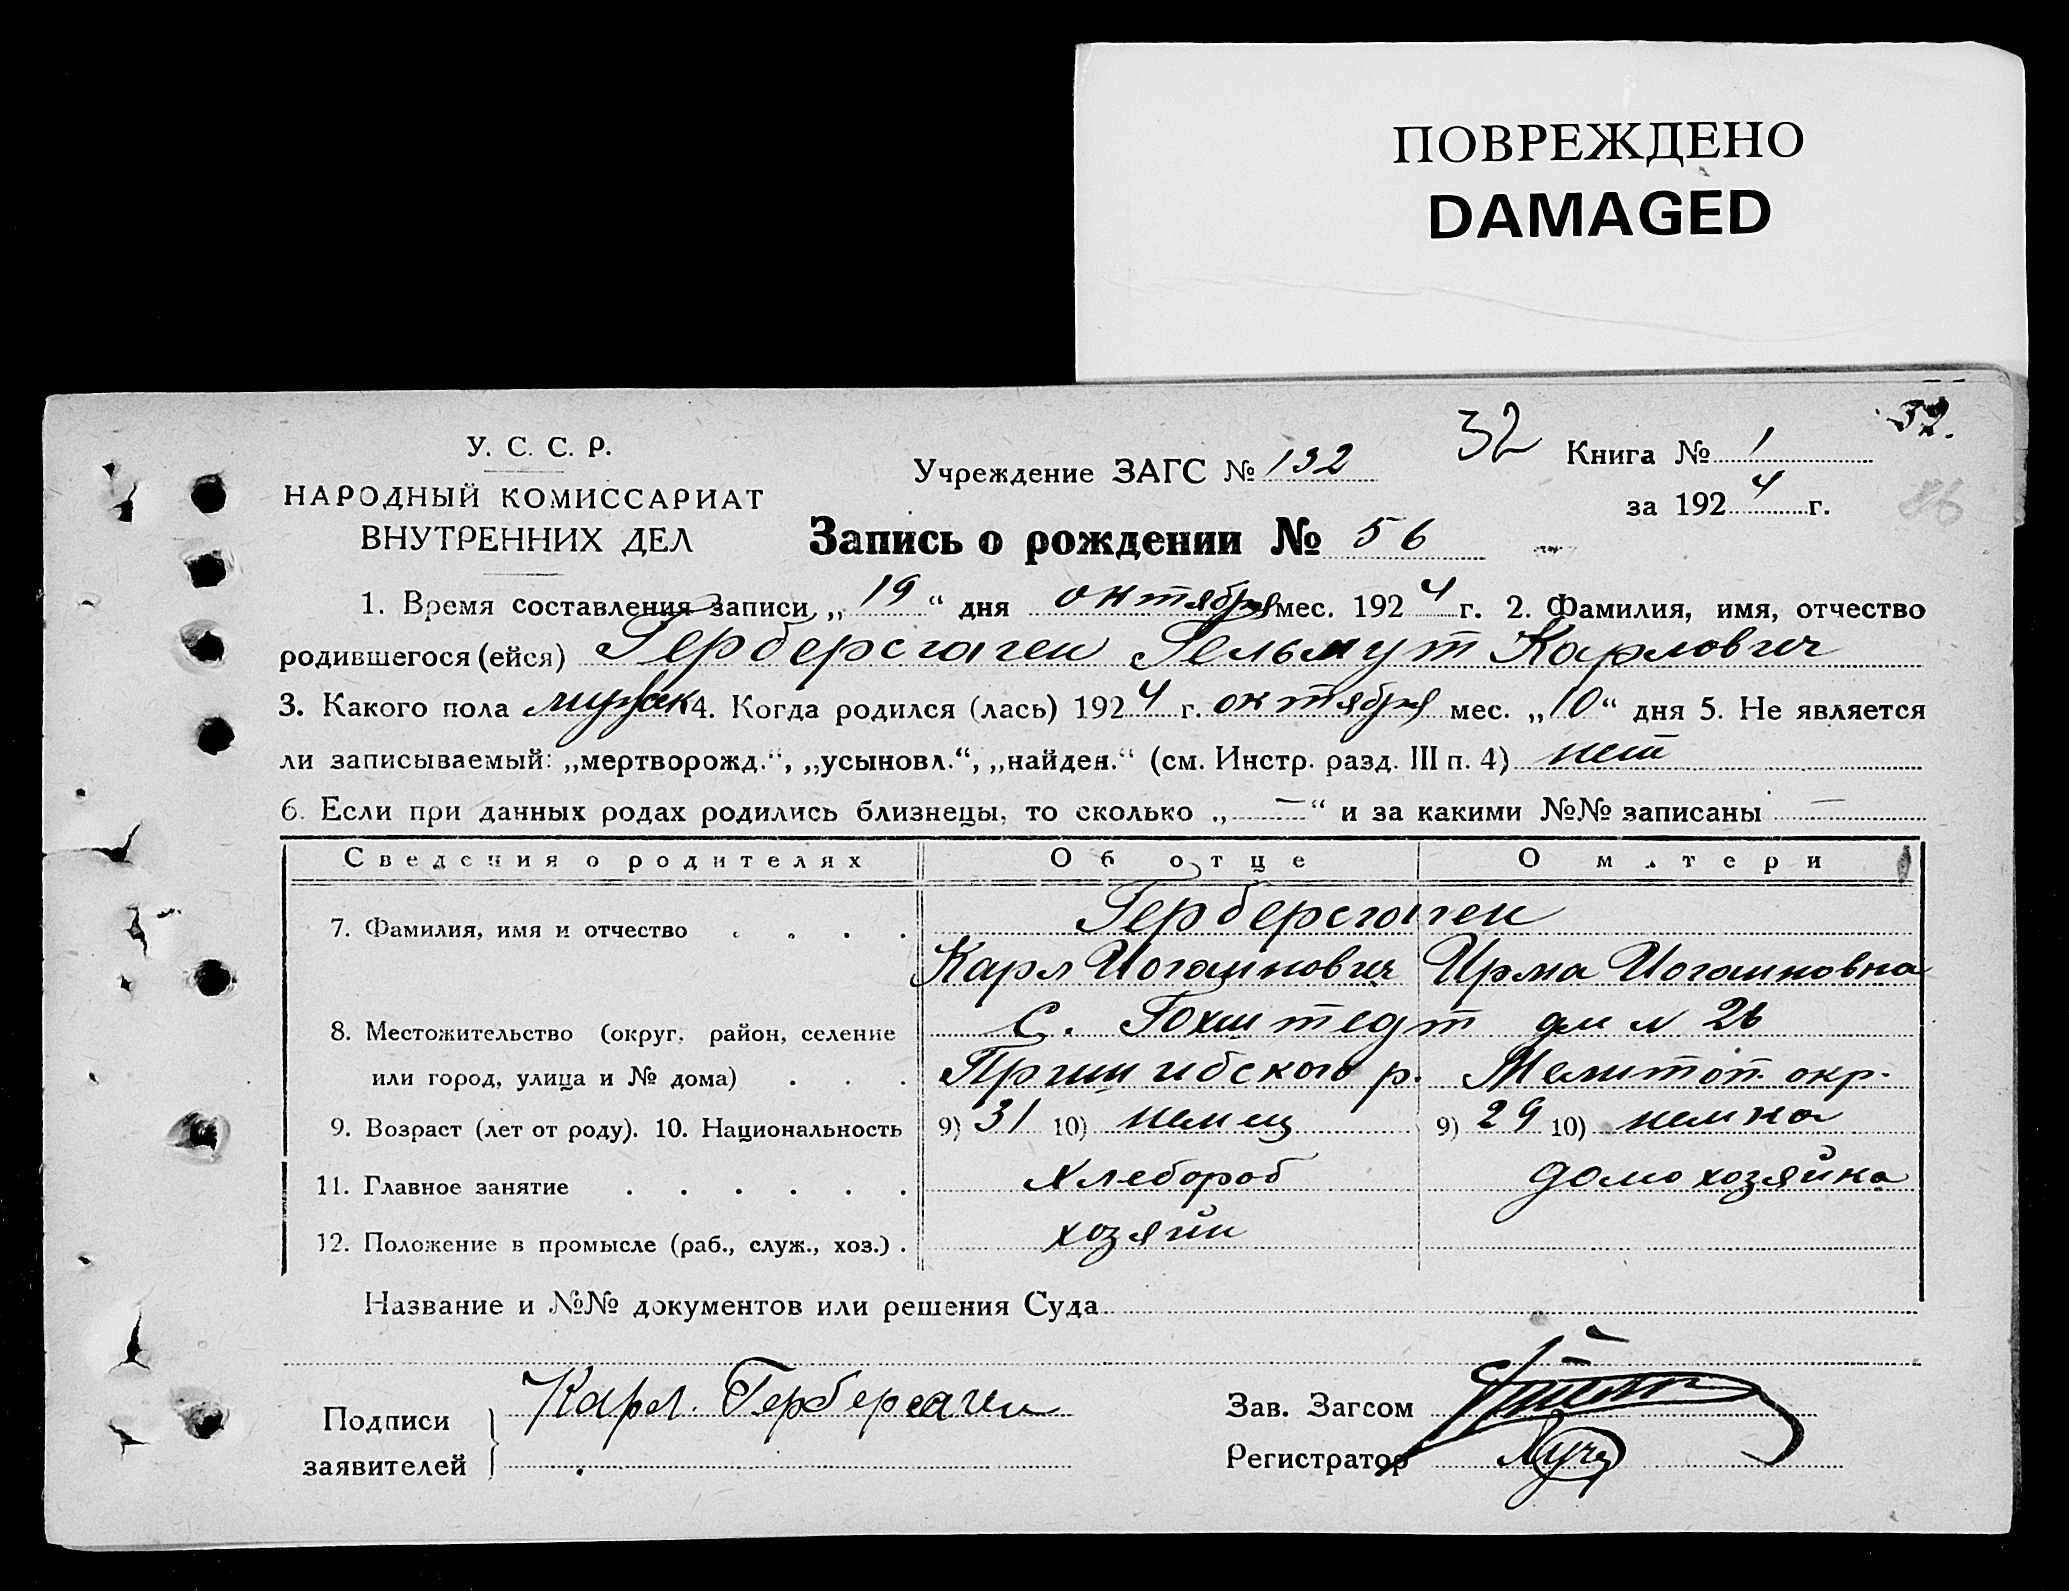 ПОВРЕЖДЕНО
DAMAGED
У. С. С. Р.
НАРОДНЫЙ КОМИССАРИАТ
ВНУТРЕННИХ ДЕЛ
Учреждение ЗАГС № 132
32
Книга № 1
32.
за 1924 г.
86
Запись о рождении № 56
1. Время составления записи „19“ дня октября мес. 1924 г. 2. Фамилия, имя, отчество
родившегося (ейся) Герберсгаген Гельмут Карлович
3. Какого пола мужск 4. Когда родился (лась) 1924 г. октября мес. „10“ дня 5. Не является
ли записываемый: „мертворожд.“, „усыновл.“, „найден.“ (см. Инстр. разд. III п. 4) нет
6. Если при данных родах родились близнецы, то сколько „—“ и за какими №№ записаны —
Сведения о родителях Об отце О матери
7. Фамилия, имя и отчество . . . . Герберсгаген
Карл Иоганнович Ирма Иоганновна
8. Местожительство (округ, район, селение с. Гохштедт дм № 26
или город, улица и № дома) . . . Пришибского р. Мелитоп. окр.
9. Возраст (лет от роду). 10. Национальность 9) 31 10) немец 9) 29 10) немка
11. Главное занятие . . . . . . Хлебороб домохозяйка
12. Положение в промысле (раб., служ., хоз.) . хозяин
Название и №№ документов или решения Суда
Подписи
заявителей
Карл. Герберсаген
Зав. Загсом
Регистратор